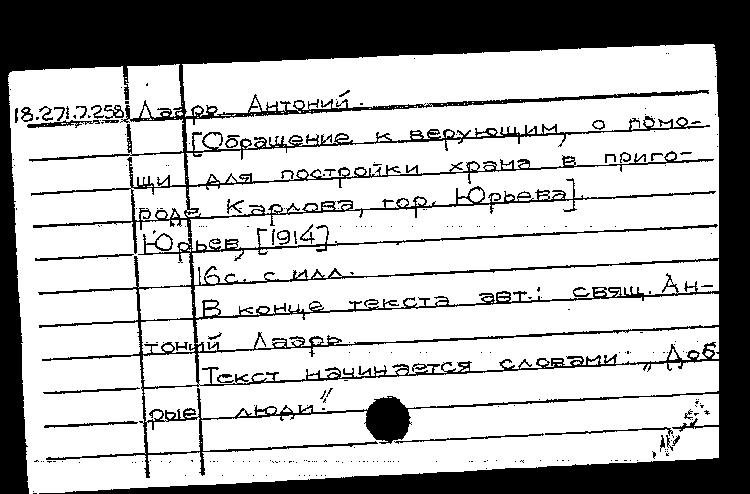 18.271.7.258 Лаарь. Антоний.
[Обращение к верующим, о помо-
щи для постройки храма в приго-
роде Карлова, гор. Юрьева]
Юрьев, [1914].
16 с. с илл.
В конце текста авт.: свящ. Ан-
тоний Лаарь
Текст начинается словами: „Доб-
рые люди!"